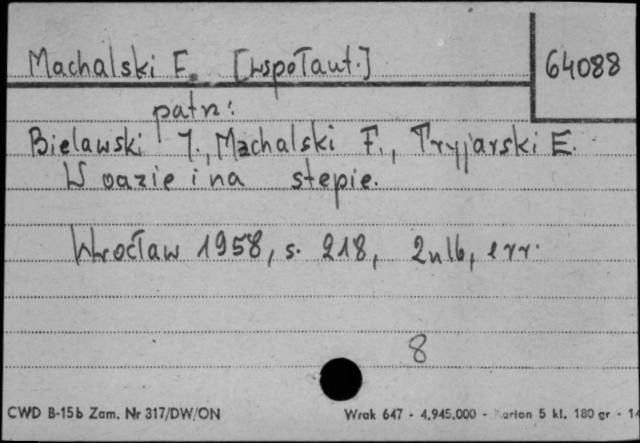 Machalski F. [współaut.]
64088
patrz:
Bielawski J., Machalski F., Tryjarski E.
W oazie i na stepie.
Wrocław 1958, s. 218, 2nlb, err.
8
CWD B-15b Zam. Nr 317/DW/ON
Wrak 647 - 4.945.000 - Karton 5 kl. 180 gr - 14